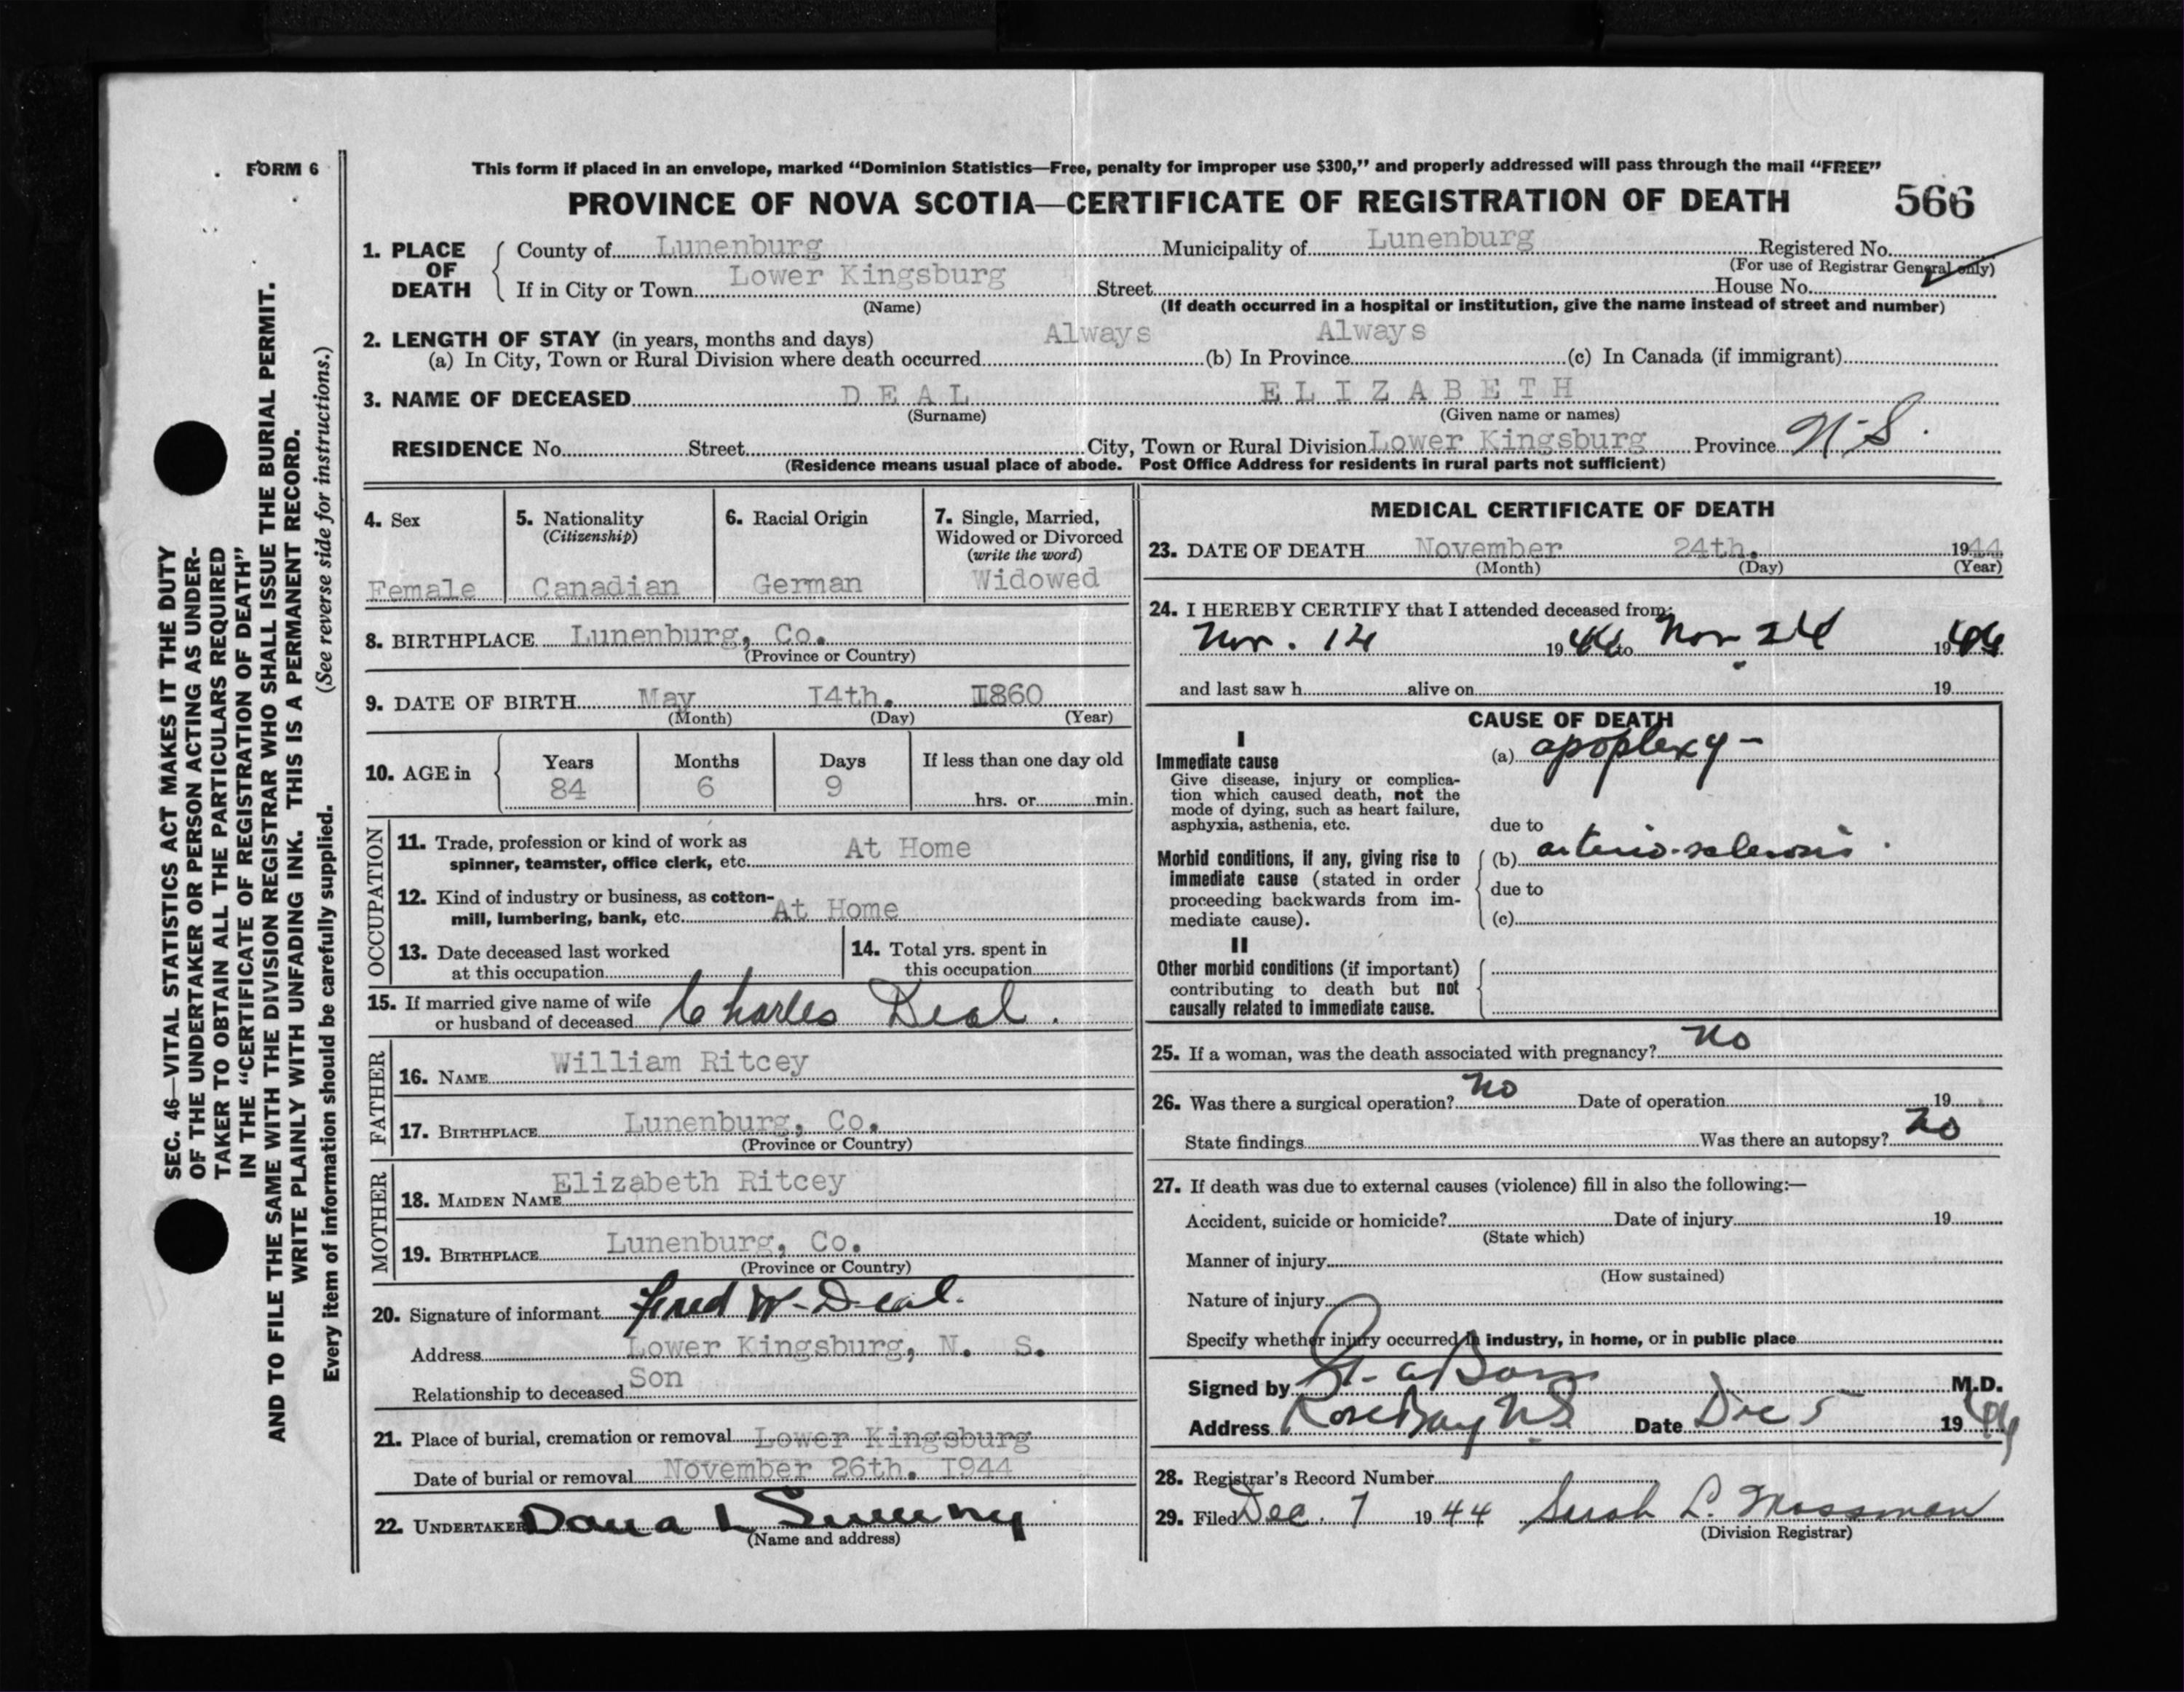 FORM 6
This form if placed in an envelope, marked “Dominion Statistics—Free, penalty for improper use $300,” and properly addressed will pass through the mail “FREE”
PROVINCE OF NOVA SCOTIA—CERTIFICATE OF REGISTRATION OF DEATH 566
1. PLACE OF DEATH County of Lunenburg Municipality of Lunenburg Registered No.
(For use of Registrar General only)
If in City or Town Lower Kingsburg Street House No.
(Name) (If death occurred in a hospital or institution, give the name instead of street and number)
2. LENGTH OF STAY (in years, months and days)
(a) In City, Town or Rural Division where death occurred Always (b) In Province Always (c) In Canada (if immigrant)
3. NAME OF DECEASED DEAL ELIZABETH
(Surname) (Given name or names)
RESIDENCE No. Street City, Town or Rural Division Lower Kingsburg Province N.S.
(Residence means usual place of abode. Post Office Address for residents in rural parts not sufficient)
4. Sex
Female
5. Nationality
(Citizenship)
Canadian
6. Racial Origin
German
7. Single, Married,
Widowed or Divorced
(write the word)
Widowed
8. BIRTHPLACE Lunenburg, Co.
(Province or Country)
9. DATE OF BIRTH May I4th. I860
(Month) (Day) (Year)
10. AGE in Years Months Days If less than one day old
84 6 9 hrs. or min.
OCCUPATION
11. Trade, profession or kind of work as
spinner, teamster, office clerk, etc. At Home
12. Kind of industry or business, as cotton-
mill, lumbering, bank, etc. At Home
13. Date deceased last worked
at this occupation
14. Total yrs. spent in
this occupation
15. If married give name of wife
or husband of deceased Charles Deal.
FATHER
16. NAME William Ritcey
17. BIRTHPLACE Lunenburg, Co.
(Province or Country)
MOTHER
18. MAIDEN NAME Elizabeth Ritcey
19. BIRTHPLACE Lunenburg, Co.
(Province or Country)
20. Signature of informant Fred W. Deal.
Address Lower Kingsburg, N. S.
Relationship to deceased Son
21. Place of burial, cremation or removal Lower Kingsburg
Date of burial or removal November 26th. I944
22. UNDERTAKER Dana L Sweeny
(Name and address)
MEDICAL CERTIFICATE OF DEATH
23. DATE OF DEATH November 24th. 1944
(Month) (Day) (Year)
24. I HEREBY CERTIFY that I attended deceased from:
Nov. 14 1944 to Nov 24 1944
and last saw h alive on 19
CAUSE OF DEATH
I
Immediate cause
Give disease, injury or complica-
tion which caused death, not the
mode of dying, such as heart failure,
asphyxia, asthenia, etc.
(a) apoplexy -
due to
Morbid conditions, if any, giving rise to
immediate cause (stated in order
proceeding backwards from im-
mediate cause).
(b) arterio-sclerosis.
due to
(c)
II
Other morbid conditions (if important)
contributing to death but not
causally related to immediate cause.
25. If a woman, was the death associated with pregnancy? No
26. Was there a surgical operation? No Date of operation 19
State findings Was there an autopsy? No
27. If death was due to external causes (violence) fill in also the following:—
Accident, suicide or homicide? Date of injury 19
(State which)
Manner of injury
(How sustained)
Nature of injury
Specify whether injury occurred in industry, in home, or in public place
Signed by M.D.
Address Rose Bay N.S. Date Dec 5 1944
28. Registrar's Record Number
29. Filed Dec. 7 1944 Sarah L. Mossman
(Division Registrar)
SEC. 46—VITAL STATISTICS ACT MAKES IT THE DUTY
OF THE UNDERTAKER OR PERSON ACTING AS UNDER-
TAKER TO OBTAIN ALL THE PARTICULARS REQUIRED
IN THE “CERTIFICATE OF REGISTRATION OF DEATH”
AND TO FILE THE SAME WITH THE DIVISION REGISTRAR WHO SHALL ISSUE THE BURIAL PERMIT.
WRITE PLAINLY WITH UNFADING INK. THIS IS A PERMANENT RECORD.
Every item of information should be carefully supplied. (See reverse side for instructions.)